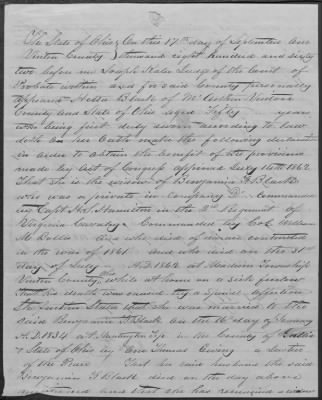 The State of Ohio } On this 17th day of September One
Vinton County } thousand eight hundred and sixty
two before me Joseph Kaler Judge of the Court of
Probate within and for said County personally
appeared Hester Black of McArthur Vinton
County and State of Ohio aged Fifty years
who being first duly sworn according to law
doth on her Oath make the following declaration
in order to obtain the benefit of the provisions
made by Act of Congress approved July 14th 1862
That she is the widow of Benjamin F Black
who was a private in Company D commanded
in Capt Hamilton in the Regiment of
Virginia Cavalry Commanded by Col
M Bolles and who died of disease contracted
in the war of 1861 and who died on the
day of July A.D. 1862 at Madison Township
Vinton County Ohio while at home on a sick furlough
that his death was caused by
the United States that she was married to the
said Benjamin F Black on the 16 day of January
A.D. 1834 at Huntington Tp in the County of Gallia
& State of Ohio by Thomas Ewing a Justice
of the Peace That her said husband the said
Benjamin F Black died on the day above
mentioned and that she has remained a widow